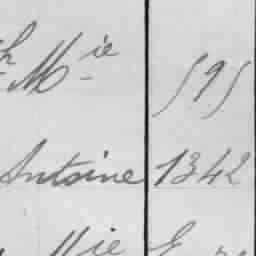 h Mie 595
Antoine 1342
Mie